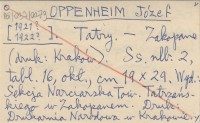 OPPENHEIM Józef
[1921?
1922?]
Tatry. — Zakopane
(druk: Kraków). Ss. nlb. 2,
tabl. 16, okł., cm 19 x 29. Wyd:
Sekcja Narciarska Tow. Tatrzań-
skiego w Zakopanem. Druk:
Drukarnia Narodowa w Krakowie.